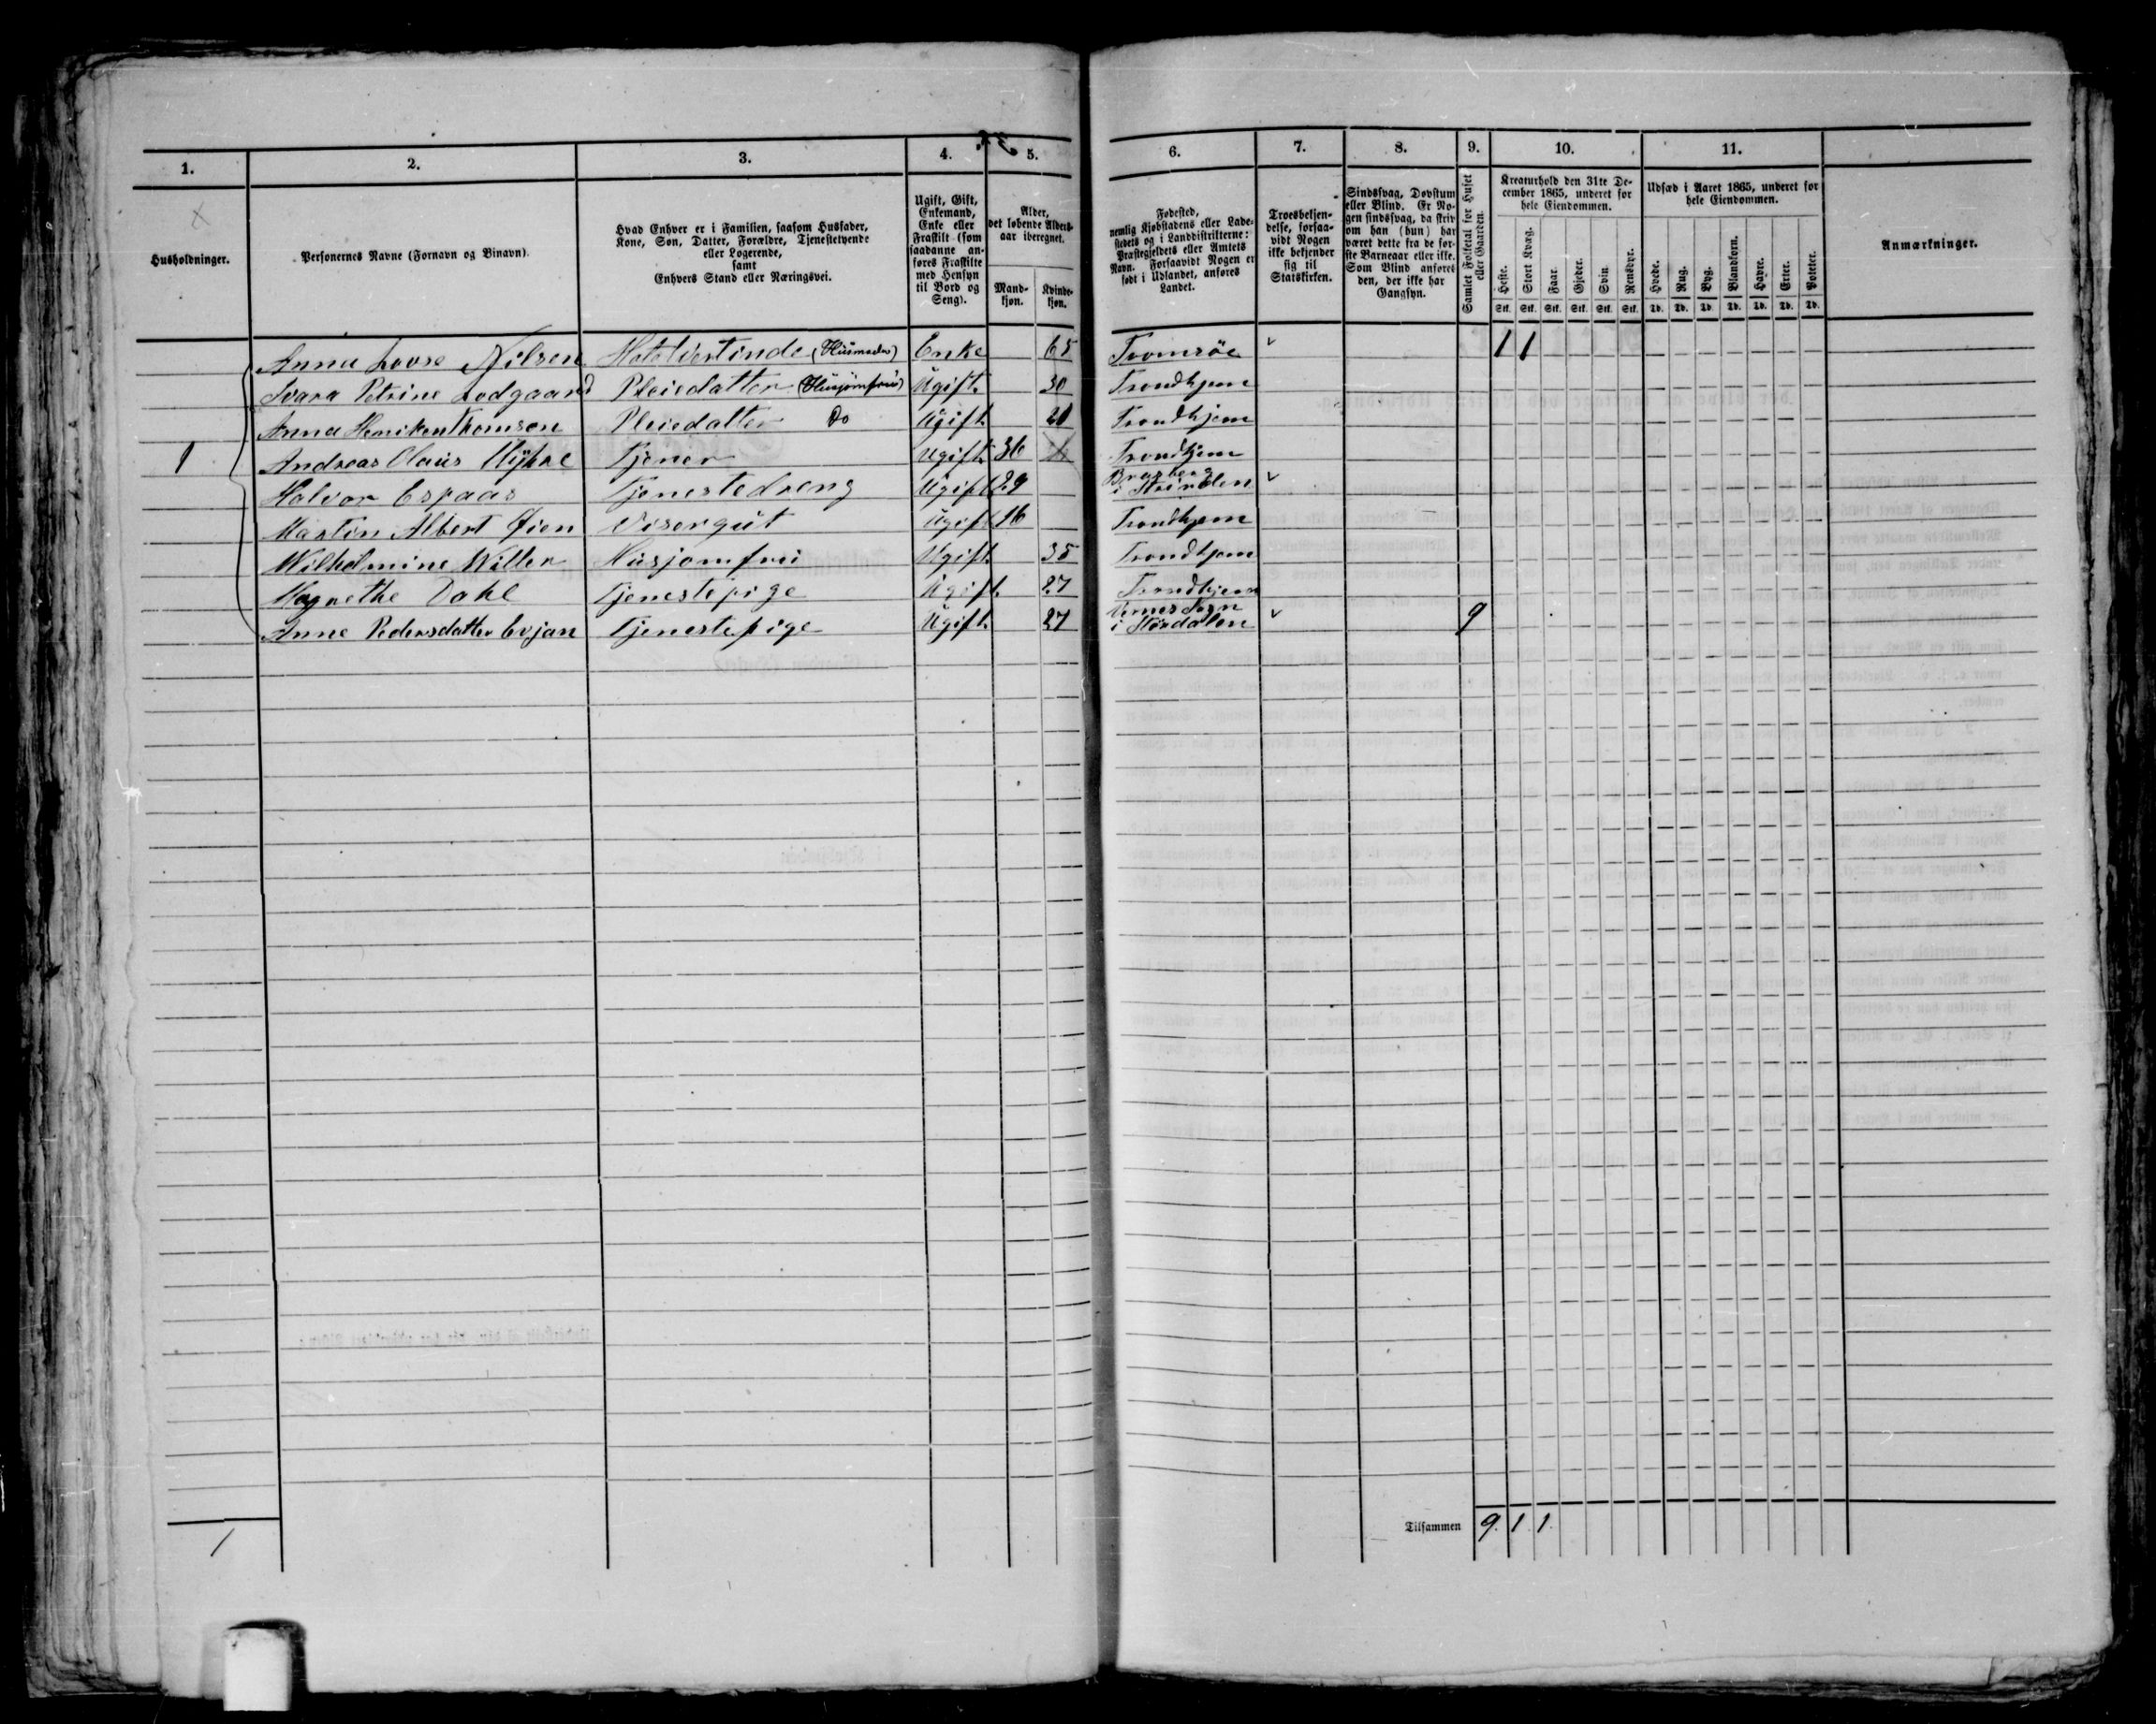 1. 2. 3. 4. 5. 6. 7. 8. 9. 10. 11.
Husholdninger.
Personernes Navne (Fornavn og Binavn).
Hvad Enhver er i Familien, saasom Husfader,
Kone, Søn, Datter, Forældre, Tjenestetyende
eller Logerende,
samt
Enhvers Stand eller Næringsvei.
Ugift, Gift,
Enkemand,
Enke eller
Fraskilt (som
saadanne an-
føres Fraskilte
med Hensyn
til Bord og
Seng).
Alder,
det løbende Alders-
aar iberegnet.
Mand-
kjøn.
Kvinde-
kjøn.
Fødested,
nemlig Kjøbstadens eller Lade-
stedets og i Landdistrikterne:
Præstegjeldets eller Amtets
Navn. Forsaavidt Nogen er
født i Udlandet, anføres
Landet.
Troesbekjen-
delse, forsaa-
vidt Nogen
ikke bekjender
sig til
Statskirken.
Sindssvag, Døvstum
eller Blind. Er No-
gen sindssvag, da skriv
om han (hun) har
været dette fra de før-
ste Barneaar eller ikke.
Som Blind anføres
den, der ikke har
Gangsyn.
Samlet Folketal for Huset
eller Gaarden.
Kreaturhold den 31te De-
cember 1865, underet for
hele Eiendommen.
Heste. Stort Kvæg. Faar. Gjeder. Svin. Rensdyr.
Stk. Stk. Stk. Stk. Stk. Stk.
Udsæd i Aaret 1865, underet for
hele Eiendommen.
Hvede. Rug. Byg. Blandkorn. Havre. Erter. Poteter.
Td. Td. Td. Td. Td. Td. Td.
Anmærkninger.
Anna Lovse Nilsen Hotelvertinde (Husmoder) Enke 65 Tromsøe 1 1
Petrine Lodgaard Pleiedatter (Husjomfru) Ugift 30 Trondhjem
Anna Thomson Pleiedatter Do Ugift Trondhjem
1 Andreas Olaus Tjener Ugift 36 Trondhjem
Halvor Espaas Tjenestedreng Ugift 29 Bratsberg
i Strinden
Martin Albert Øien Visergut Ugift 16 Trondhjem
Wilhelmine Willer Husjomfru Ugift 35 Trondhjem
Magnethe Dahl Tjenestepige Ugift 27 Trondhjem
Anne Pedersdatter Evjan Tjenestepige Ugift 27 Vernes Sogn
i Størdalen 9
1 Tilsammen 9. 1. 1.